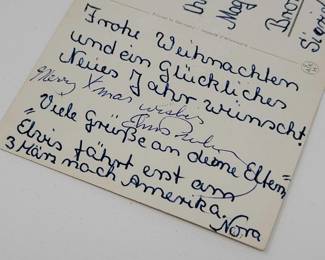 Frohe Weihnachten
und ein Glückliches
Neues Jahr wünscht!
Merry Xmas wishes
"Viele Grüße an deine Eltern"
Elvis fährt erst am
3 März nach Amerika.
Nora